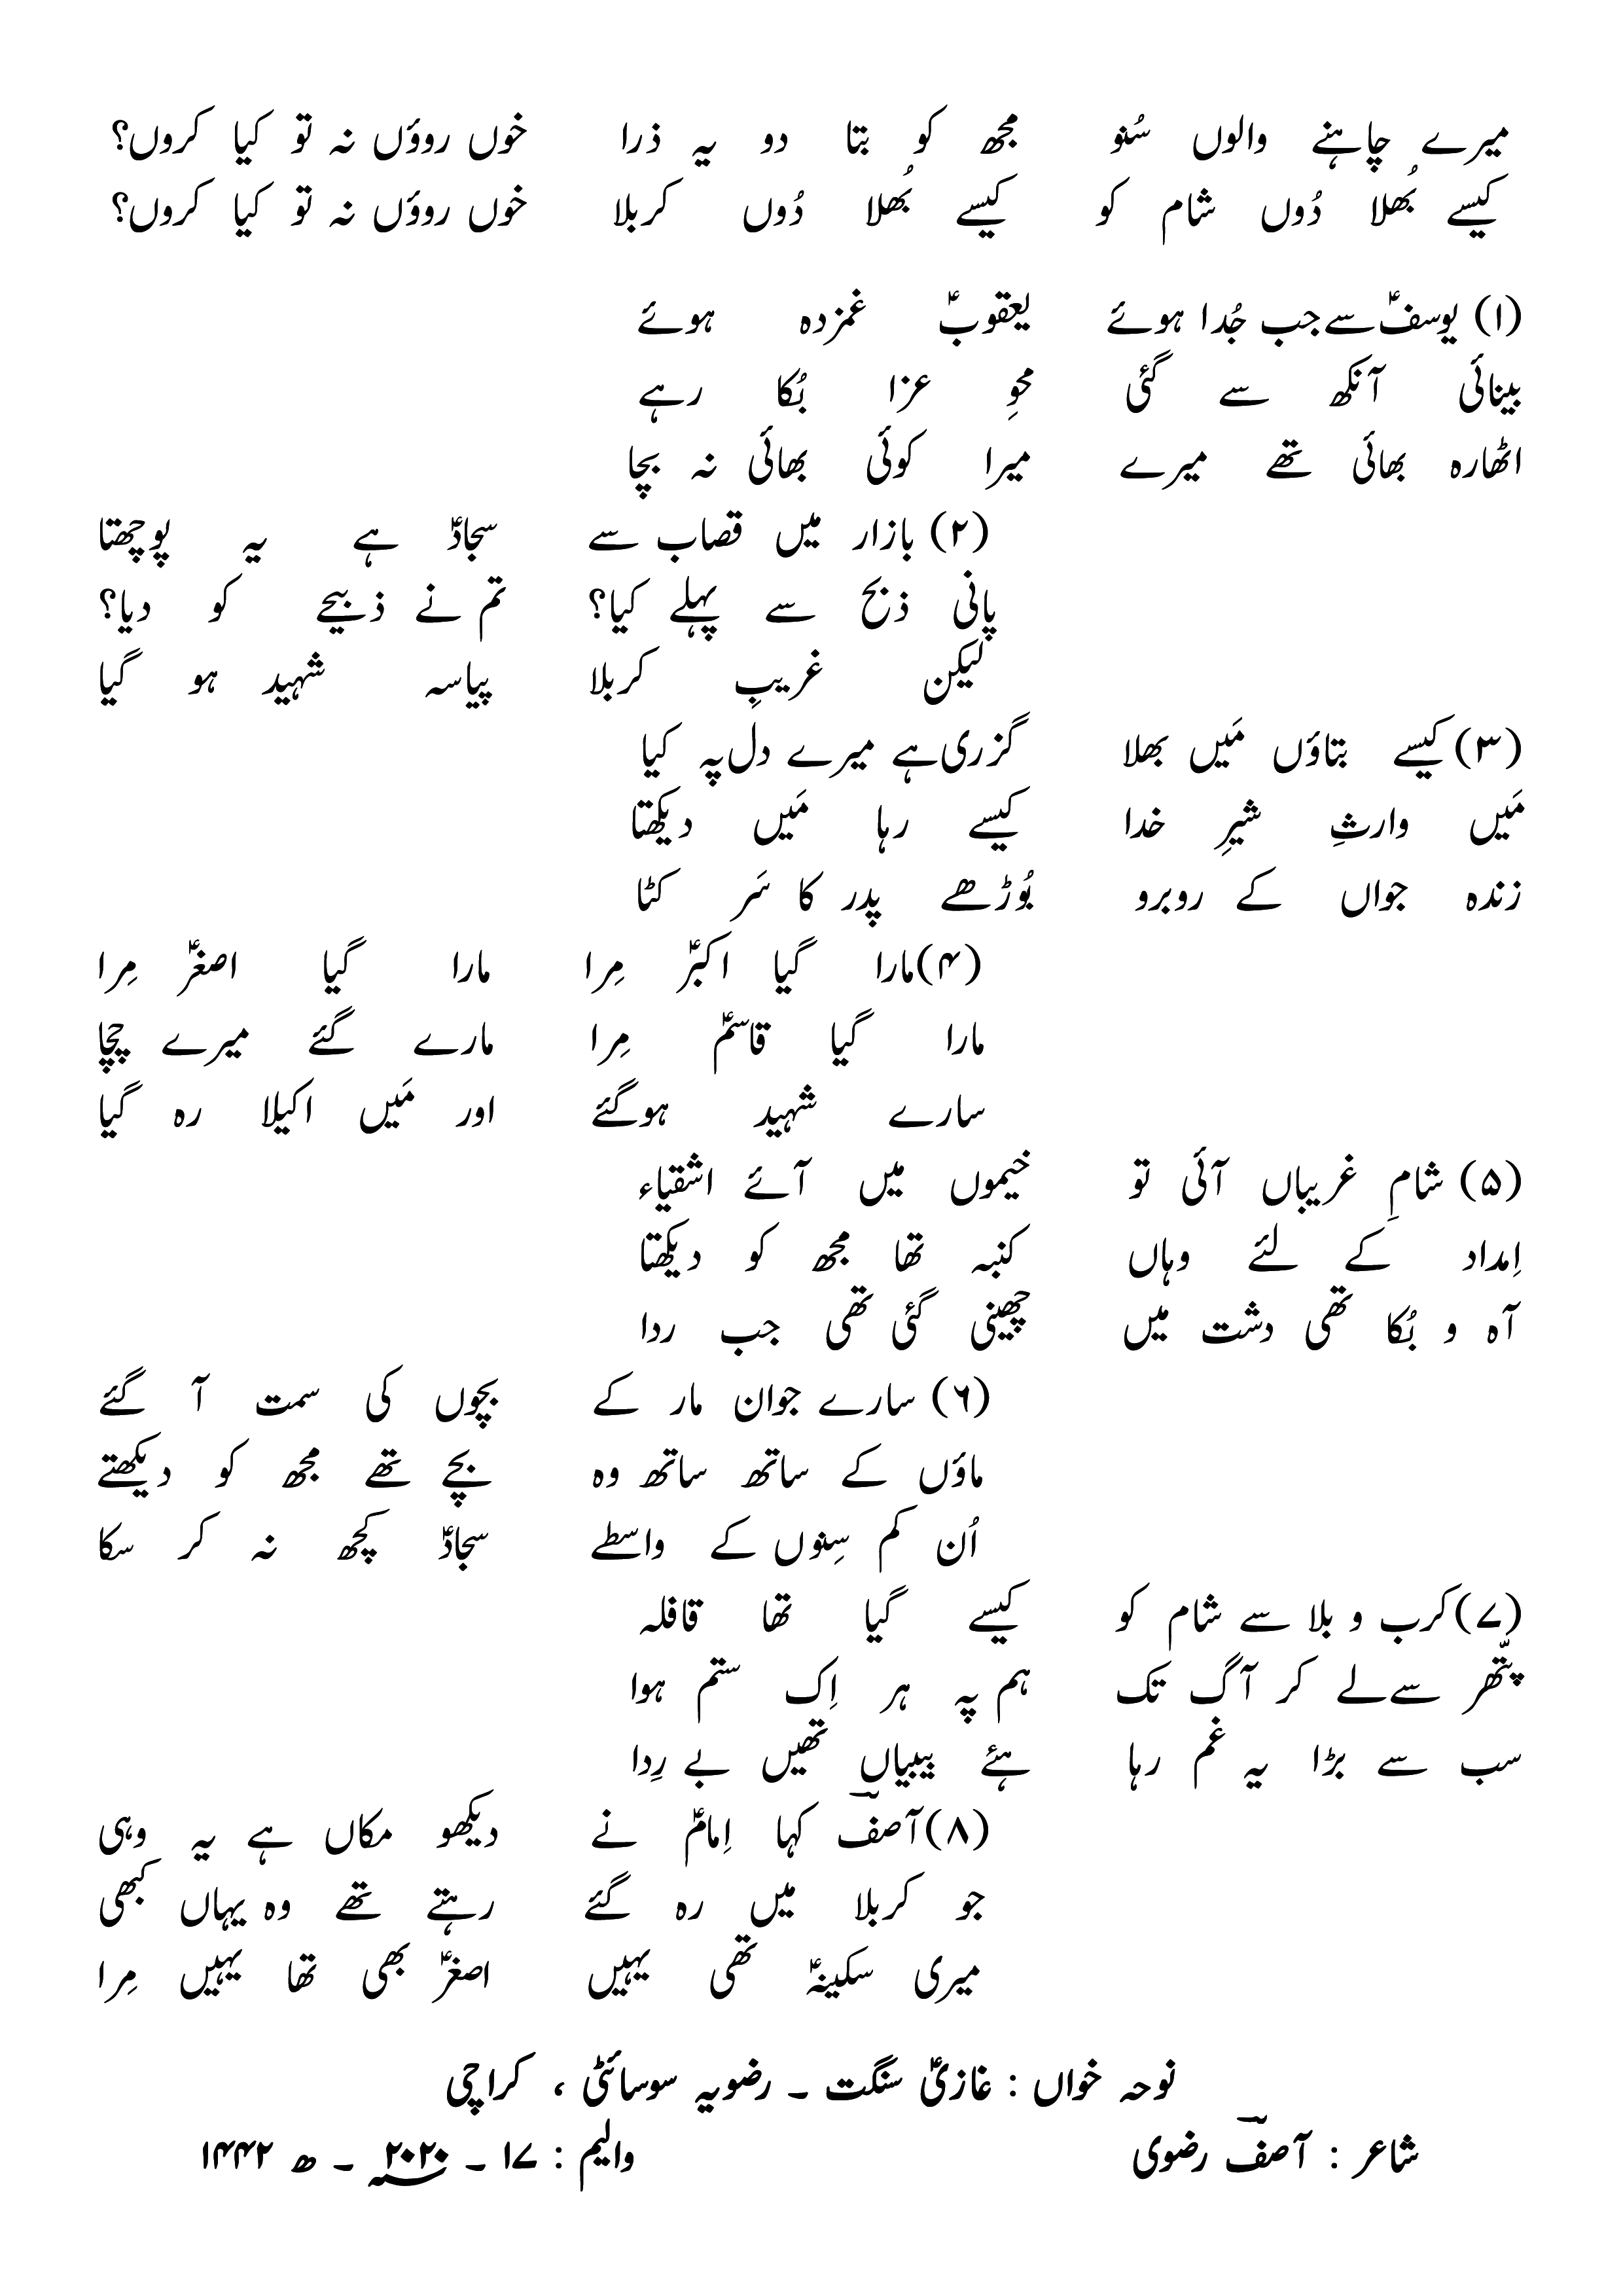 میرے چاہنے والوں سُنو مجھ کو بتا دو یہ ذرا خوں روؤں نہ تو کیا کروں؟
کیسے بُھلا دُوں شام کو کیسے بُھلا دُوں کربلا خوں روؤں نہ تو کیا کروں؟
(۱) یوسفؑ سے جب جُدا ہوئے یعقوبؑ غمزدہ ہوئے
بینائی آنکھ سے گئی محوِ عزا بُکا رہے
اٹھارہ بھائی تھے میرے میرا کوئی بھائی نہ بچا
(۲) بازار میں قصاب سے سجادؑ ہے یہ پوچھتا
پانی ذبح سے پہلے کیا؟ تم نے ذبیحے کو دیا؟
لیکن غریبِ کربلا پیاسہ شہید ہو گیا
(۳) کیسے بتاؤں مَیں بھلا گزری ہے میرے دل پہ کیا
مَیں وارثِ شیرِ خدا کیسے رہا مَیں دیکھتا
زندہ جواں کے روبرو بُوڑھے پدر کا سَر کٹا
(۴) مارا گیا اکبرؑ مِرا مارا گیا اصغرؑ مِرا
مارا گیا قاسمؑ مِرا مارے گئے میرے چچا
سارے شہید ہوگئے اور مَیں اکیلا رہ گیا
(۵) شامِ غریباں آئی تو خیموں میں آئے اشقیاء
اِمداد کے لئے وہاں کنبہ تھا مجھ کو دیکھتا
آہ و بُکا تھی دشت میں چھینی گئی تھی جب ردا
(۶) سارے جوان مار کے بچوں کی سمت آ گئے
ماؤں کے ساتھ ساتھ وہ بچے تھے مجھ کو دیکھتے
اُن کم سِنوں کے واسطے سجادؑ کچھ نہ کر سکا
(۷) کرب و بلا سے شام کو کیسے گیا تھا قافلہ
پتّھر سے لے کر آگ تک ہم پہ ہر اِک ستم ہوا
سب سے بڑا یہ غم رہا ہئے بیبیاں تھیں بے رِدا
(۸) آصفؔ کہا اِمامؑ نے دیکھو مکاں ہے یہ وہی
جو کربلا میں رہ گئے رہتے تھے وہ یہاں کبھی
میری سکینہؑ تھی یہیں اصغرؑ بھی تھا یہیں مِرا
نوحہ خواں : غازیؑ سنگت ۔ رضویہ سوسائٹی ، کراچی
شاعر : آصفؔ رضوی والیم : ۱۷ ۔ ۲۰۲۰؁ ۔ ھ ۱۴۴۲